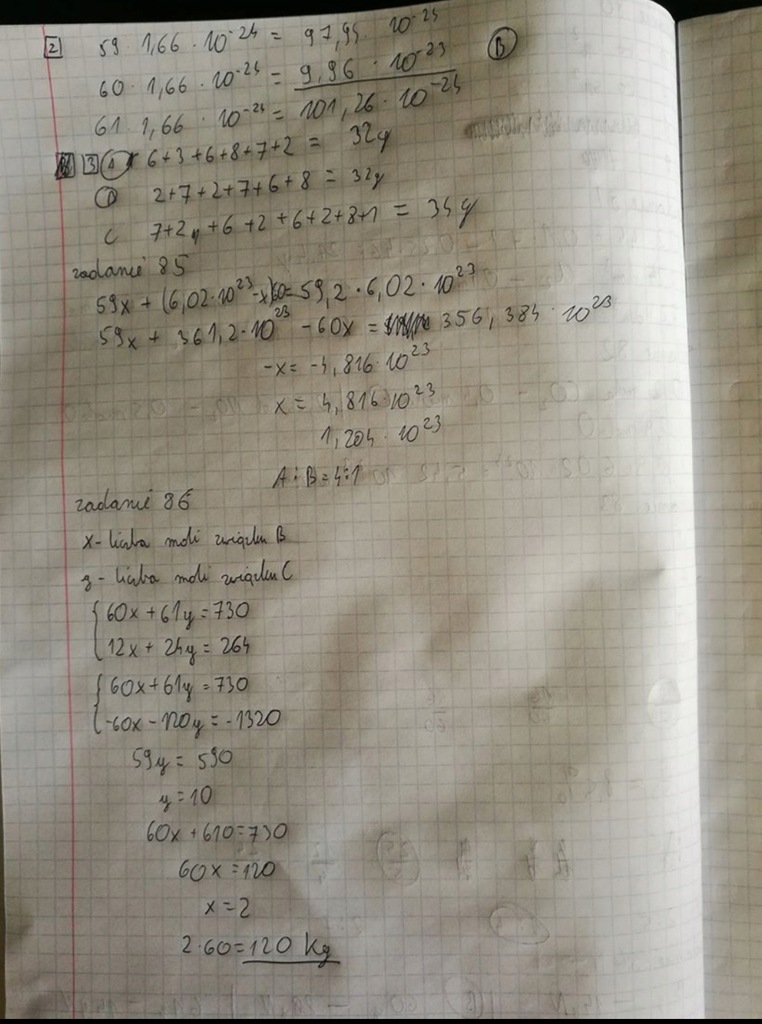 2 59 · 1,66 · 10⁻²⁴ = 97,94 · 10⁻²⁴
60 · 1,66 · 10⁻²⁴ = 9,96 · 10⁻²³ B
61 1,66 · 10⁻²⁴ = 101,26 · 10⁻²⁴
3 A 6+3+6+8+7+2 = 32y
2+7+2+7+6+8 = 32y
C 7+2y+6+2+6+2+8+1 = 34y
zadanie 85
59x + (6,02·10²³-x)60=59,2·6,02·10²³
59x + 361,2·10²³ -60x = 356,384·10²³
-x = -4,816·10²³
x = 4,816·10²³
1,204·10²³
A:B=4:1
zadanie 86
x- liczba moli związku B
y- liczba moli związku C
{60x+61y=730
12x+24y=264
{60x+61y=730
-60x-120y=-1320
59y=590
y=10
60x+610=730
60x=120
x=2
2·60=120 kg